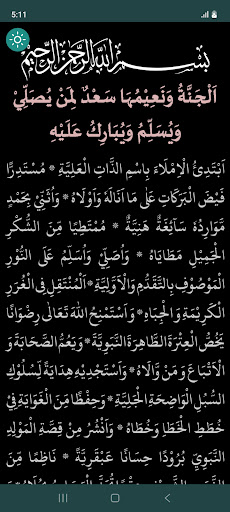 5:11
بِسْمِ اللهِ الرَّحْمٰنِ الرَّحِيْمِ
اَلْجَنَّةُ وَنَعِيْمُهَا سَعْدٌ لِمَنْ يُصَلِّيْ
وَيُسَلِّمُ وَيُبَارِكُ عَلَيْهِ
اَبْتَدِئُ الْإِمْلَاءَ بِاسْمِ الذَّاتِ الْعَلِيَّةِ * مُسْتَدِرًّا
فَيْضَ الْبَرَكَاتِ عَلٰى مَا اَنَالَهُ وَاَوْلَاهُ * وَاُثَنِّيْ بِحَمْدٍ
مَوَارِدُهُ سَائِغَةٌ هَنِيَّةٌ * مُمْتَطِيًا مِنَ الشُّكْرِ
الْجَمِيْلِ مَطَايَاهُ * وَاُصَلِّيْ وَاُسَلِّمُ عَلَى النُّوْرِ
الْمَوْصُوْفِ بِالتَّقَدُّمِ وَالْاَوَّلِيَّةِ * اَلْمُنْتَقِلِ فِي الْغُرَرِ
الْكَرِيْمَةِ وَالْجِبَاهِ * وَاَسْتَمْنِحُ اللهَ تَعَالٰى رِضْوَانًا
يَخُصُّ الْعِتْرَةَ الطَّاهِرَةَ النَّبَوِيَّةَ * وَيَعُمُّ الصَّحَابَةَ وَ
الْاَتْبَاعَ وَمَنْ وَالَاهُ * وَاَسْتَجْدِيْهِ هِدَايَةً لِسُلُوْكِ
السُّبُلِ الْوَاضِحَةِ الْجَلِيَّةِ * وَحِفْظًا مِنَ الْغَوَايَةِ فِيْ
خِطَطِ الْخَطَإِ وَخُطَاهُ * وَاَنْشُرُ مِنْ قِصَّةِ الْمَوْلِدِ
النَّبَوِيِّ بُرُوْدًا حِسَانًا عَبْقَرِيَّةً * نَاظِمًا مِنَ